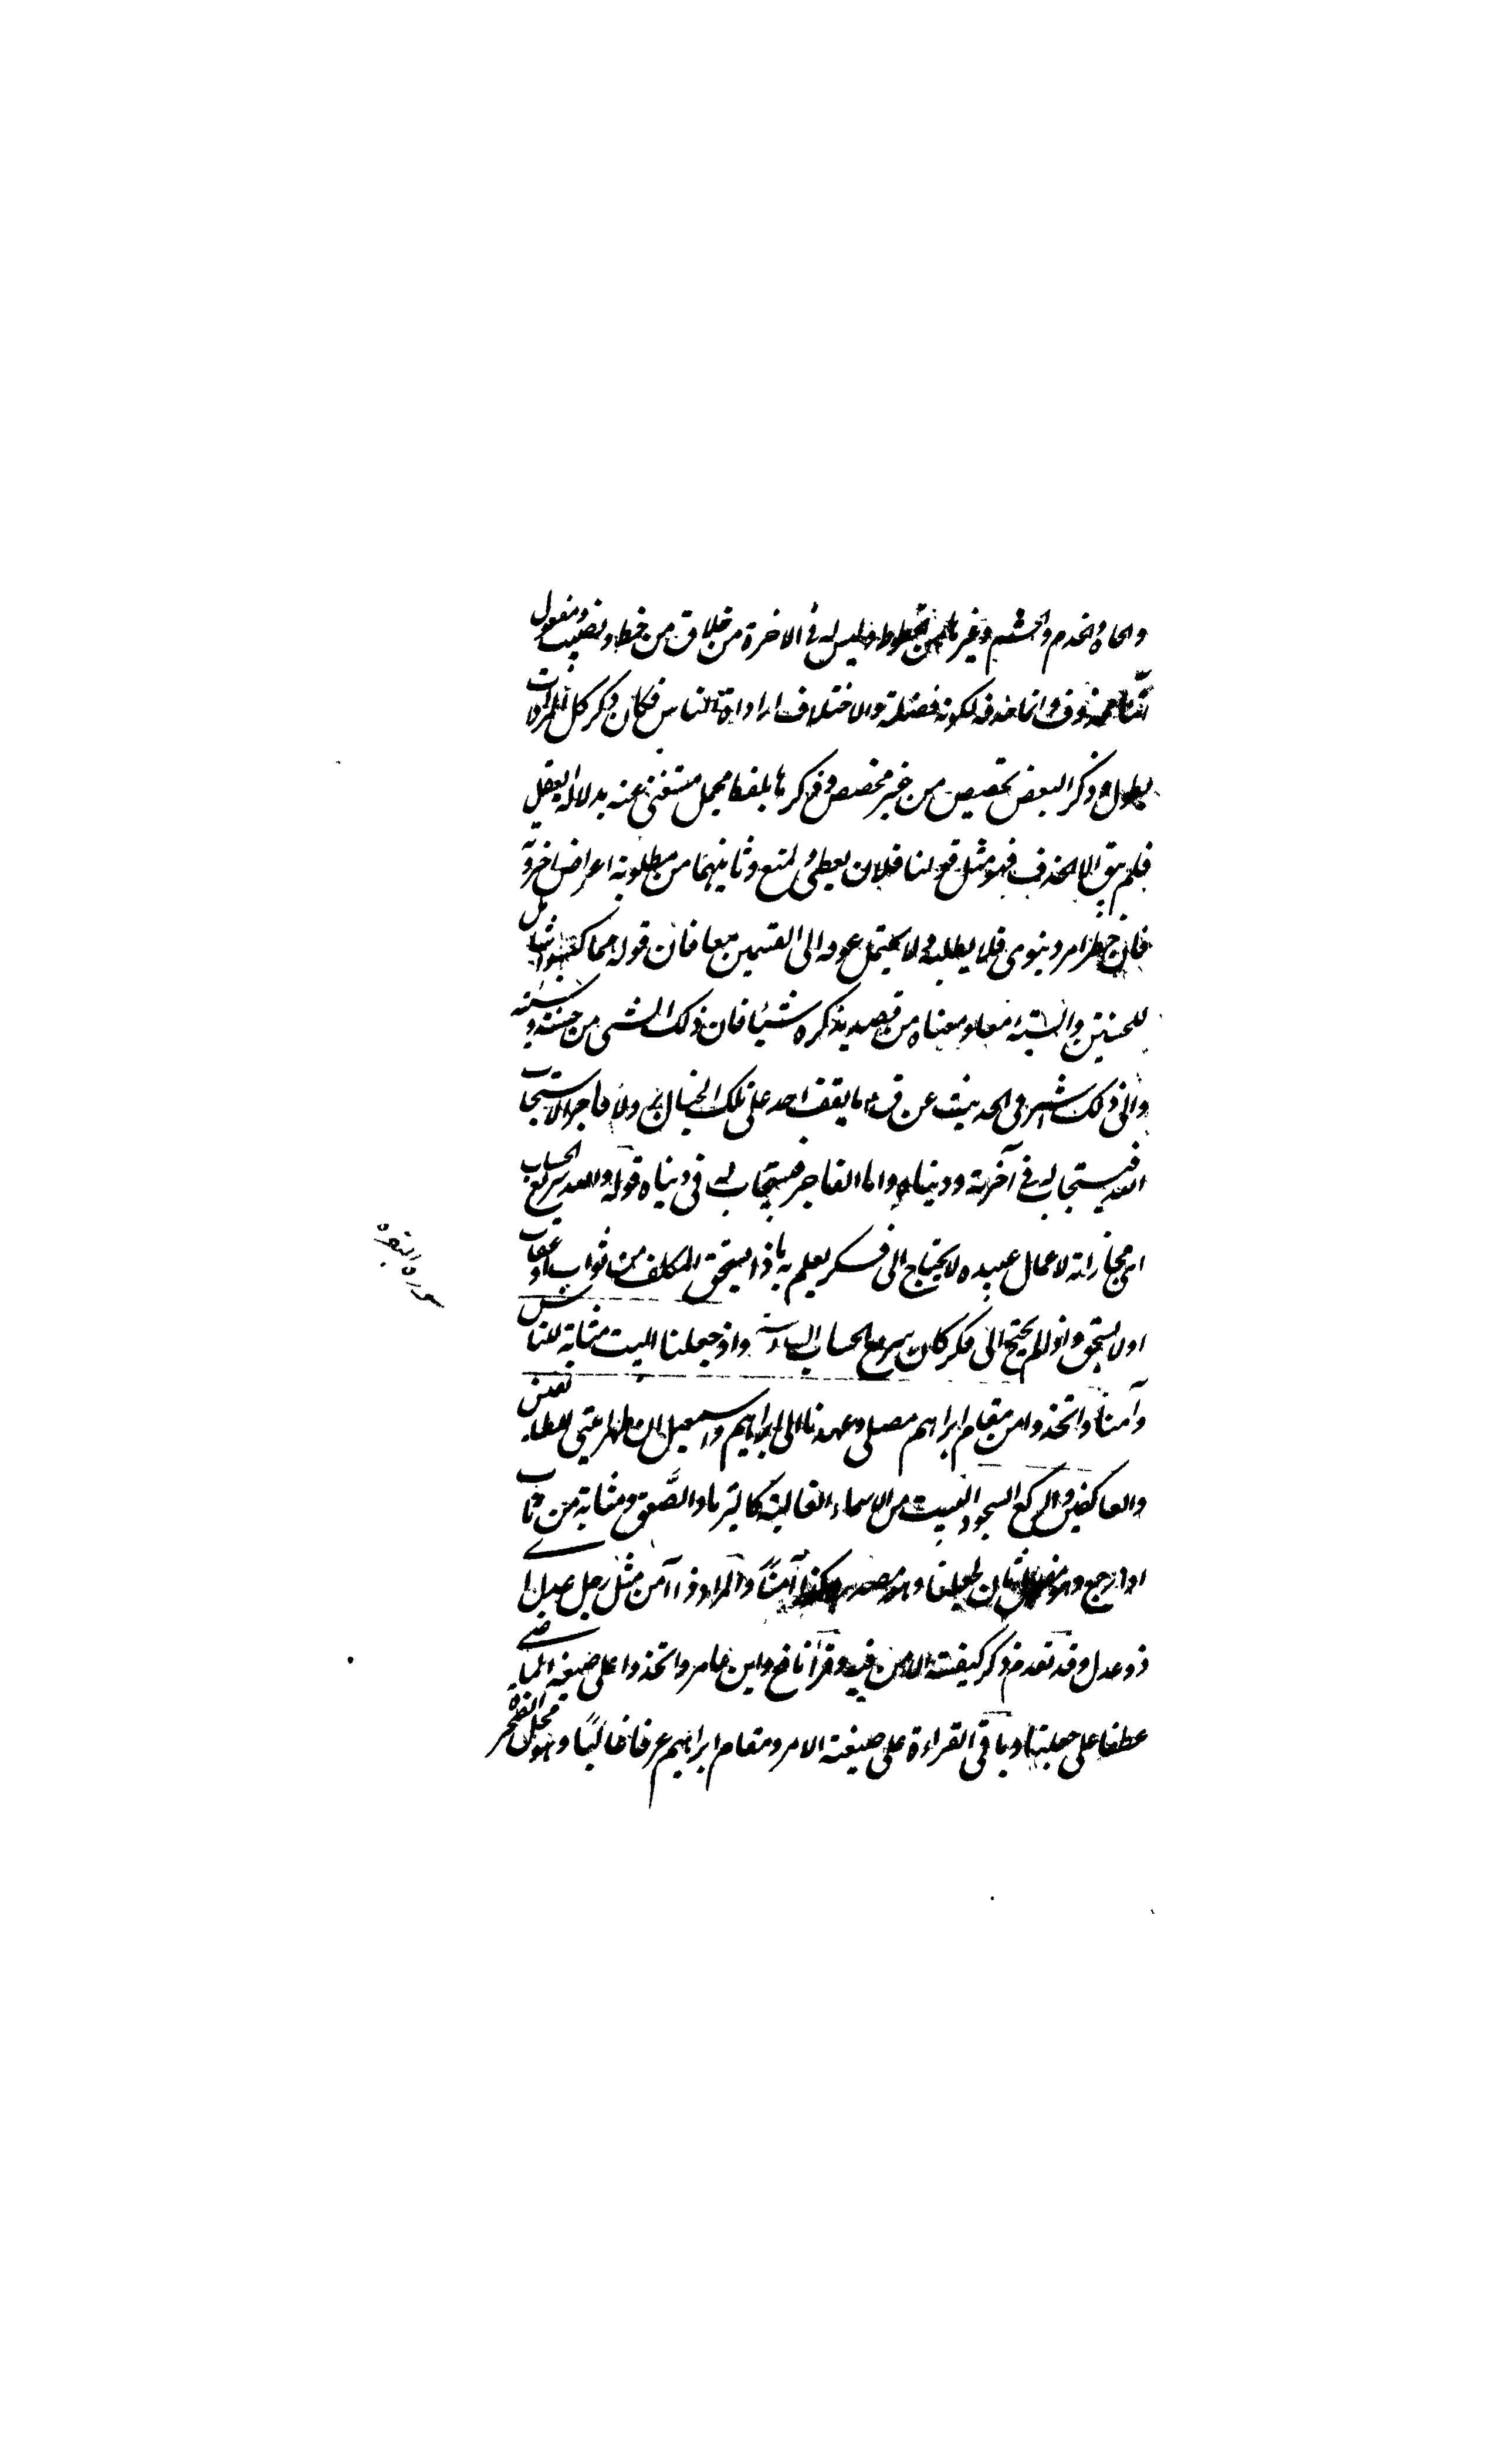 والجاه والخدم والحشم وغيرها من الحظوظ وليس له في الاخرة من خلاق من حظ ونصيب ومفعول
آتنا محذوف وانما حذفه لكونه فضلة والاختلاف ارادات الناس فكان ذكر كل المرادات
يطول وذكر البعض تخصيص من غير مخصص وذكرها بلفظ مجمل مستغنى عنه بدلالة العقل
فلم يبق الا الحذف فهو مثل قولنا فلان يعطي ويمنع وثانيهما من مطلوبه اعراض اخروية
فان خطر امر دنيوي فلا يطلبه ولا يحتمل عوده الى القسمين معا فان قوله مما كسبوا شامل
للحسنتين والسيئة معا ومعناه من قصد بذكره شيئا فان ذلك الشي من حسنة وسيئة
والى ذلك اشير في الحديث عن ق م ما يقف احد على تلك الجبال بر ولا فاجر الا استجاب
الله فيستجاب له في آخرته ودنياه واما الفاجر فيستجاب له في دنياه قوله والله سريع الحساب
اي مجازاته لاعمال عبيده لا يحتاج الى فكر يعلم به ماذا يستحق المكلف من ثواب او عقاب
او لا يستحق واذا لم يحتج الى فكر كان سريع الحساب السادسة واذ جعلنا البيت مثابة للناس
وآمنا واتخذوا من مقام ابراهيم مصلى وعهدنا الى ابراهيم واسمعيل ان طهرا بيتي للطائفين
والعاكفين والركع السجود البيت من الاسماء الغالبة كالثريا والصعق ومثابة من ثاب
اذا رجع وهو مفعول ثان لجعلنا وهو مصدر وكذا آمنا والمراد ذا امن مثل رجل عدل اي
ذو عدل وقد تقدم ذكر كيفية الامن فيه وقرأ نافع وابن عامر واتخذوا على صيغة الماضي
عطفا على جعلنا وباقي القراءة على صيغة الامر ومقام ابراهيم عرفا غالبا وهو محل الصخرة
سورة البقرة